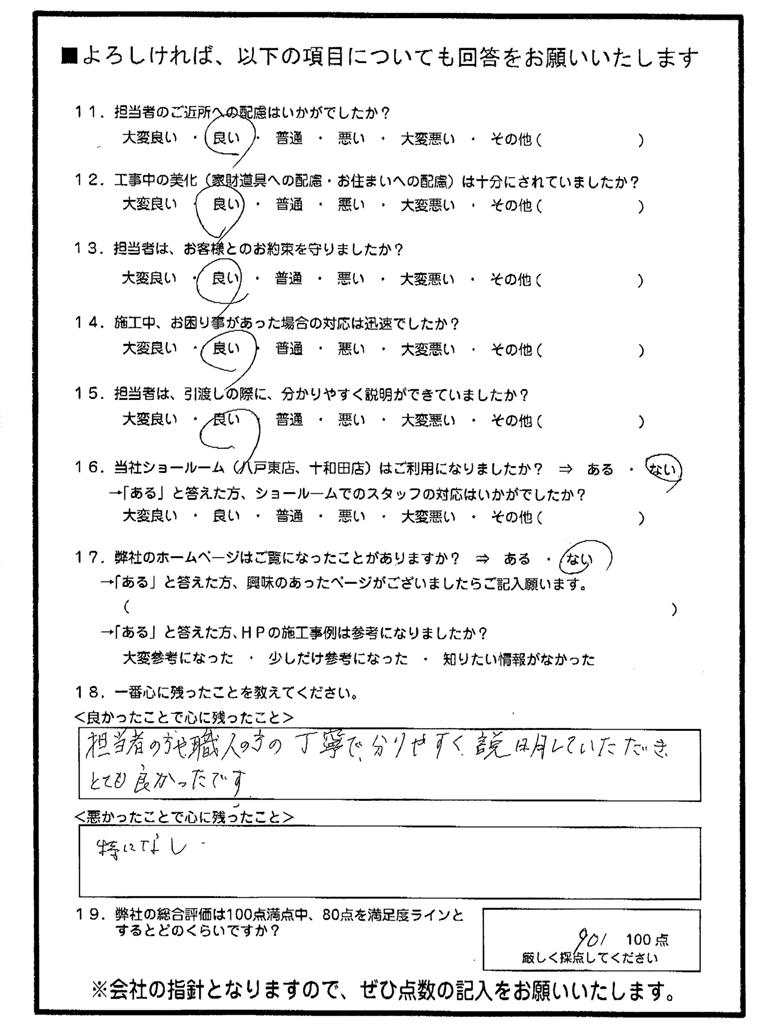 ■よろしければ、以下の項目についても回答をお願いいたします
11．担当者のご近所への配慮はいかがでしたか？
大変良い ・ 良い ・ 普通 ・ 悪い ・ 大変悪い ・ その他（　　　　　　）
12．工事中の美化（家財道具への配慮・お住まいへの配慮）は十分にされていましたか？
大変良い ・ 良い ・ 普通 ・ 悪い ・ 大変悪い ・ その他（　　　　　　）
13．担当者は、お客様とのお約束を守りましたか？
大変良い ・ 良い ・ 普通 ・ 悪い ・ 大変悪い ・ その他（　　　　　　）
14．施工中、お困り事があった場合の対応は迅速でしたか？
大変良い ・ 良い ・ 普通 ・ 悪い ・ 大変悪い ・ その他（　　　　　　）
15．担当者は、引渡しの際に、分かりやすく説明ができていましたか？
大変良い ・ 良い ・ 普通 ・ 悪い ・ 大変悪い ・ その他（　　　　　　）
16．当社ショールーム（八戸東店、十和田店）はご利用になりましたか？ ⇒ ある ・ ない
→「ある」と答えた方、ショールームでのスタッフの対応はいかがでしたか？
大変良い ・ 良い ・ 普通 ・ 悪い ・ 大変悪い ・ その他（　　　　　　）
17．弊社のホームページはご覧になったことがありますか？ ⇒ ある ・ ない
→「ある」と答えた方、興味のあったページがございましたらご記入願います。
（　　　　　　　　　　　　）
→「ある」と答えた方、HPの施工事例は参考になりましたか？
大変参考になった ・ 少しだけ参考になった ・ 知りたい情報がなかった
18．一番心に残ったことを教えてください。
<良かったことで心に残ったこと>
担当者の方や職人の方の丁寧で、分りやすく説明していただき、
とても良かったです
<悪かったことで心に残ったこと>
特になし.
19．弊社の総合評価は100点満点中、80点を満足度ラインと
するとどのくらいですか？
90/ 100点
厳しく採点してください
※会社の指針となりますので、ぜひ点数の記入をお願いいたします。